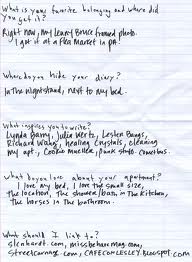 What is your favorite belonging and where did
you get it?
Right now, my Lenny Bruce framed photo.
I got it at a Flea Market in PA.
Where do you hide your diary?
In the nightstand, next to my bed.
What inspires you to write?
Lynda Barry, Julia Wertz, Lester Bangs,
Richard Wahg, healing Crystals, cleaning
my apt, Cookie Mueller, punk stuff. comic bus.
What do you love about your apartment?
I love my bed, I love the small size,
the location, the shower/bath in the kitchen,
the horses in the bathroom.
What should I link to?
slenhardt.com, missbehavemag.com,
streetcarnage.com, CAFECOMLESLEY.BLOGSPOT.COM